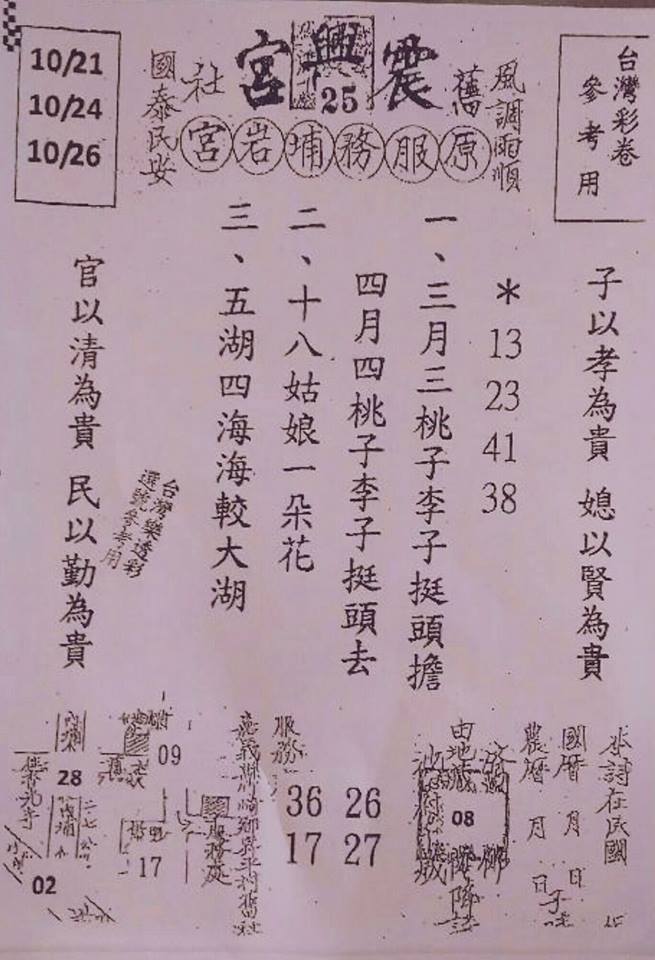 台灣彩卷
參考用
風調雨順
舊
震興宮
25
社
國泰民安
10/21
10/24
10/26
原服務埔岩宮
子以孝為貴 媳以賢為貴
*
13
23
41
38
一、三月三桃子李子挺頭擔
四月四桃子李子挺頭去
二、十八姑娘一朵花
三、五湖四海海較大湖
台灣樂透彩
選號參考用
官以清為貴 民以勤為貴
本詩在民國
國曆 月 日
農曆 月 日 子時
08
服務
36 26
17 27
服務處
09
17
28
02